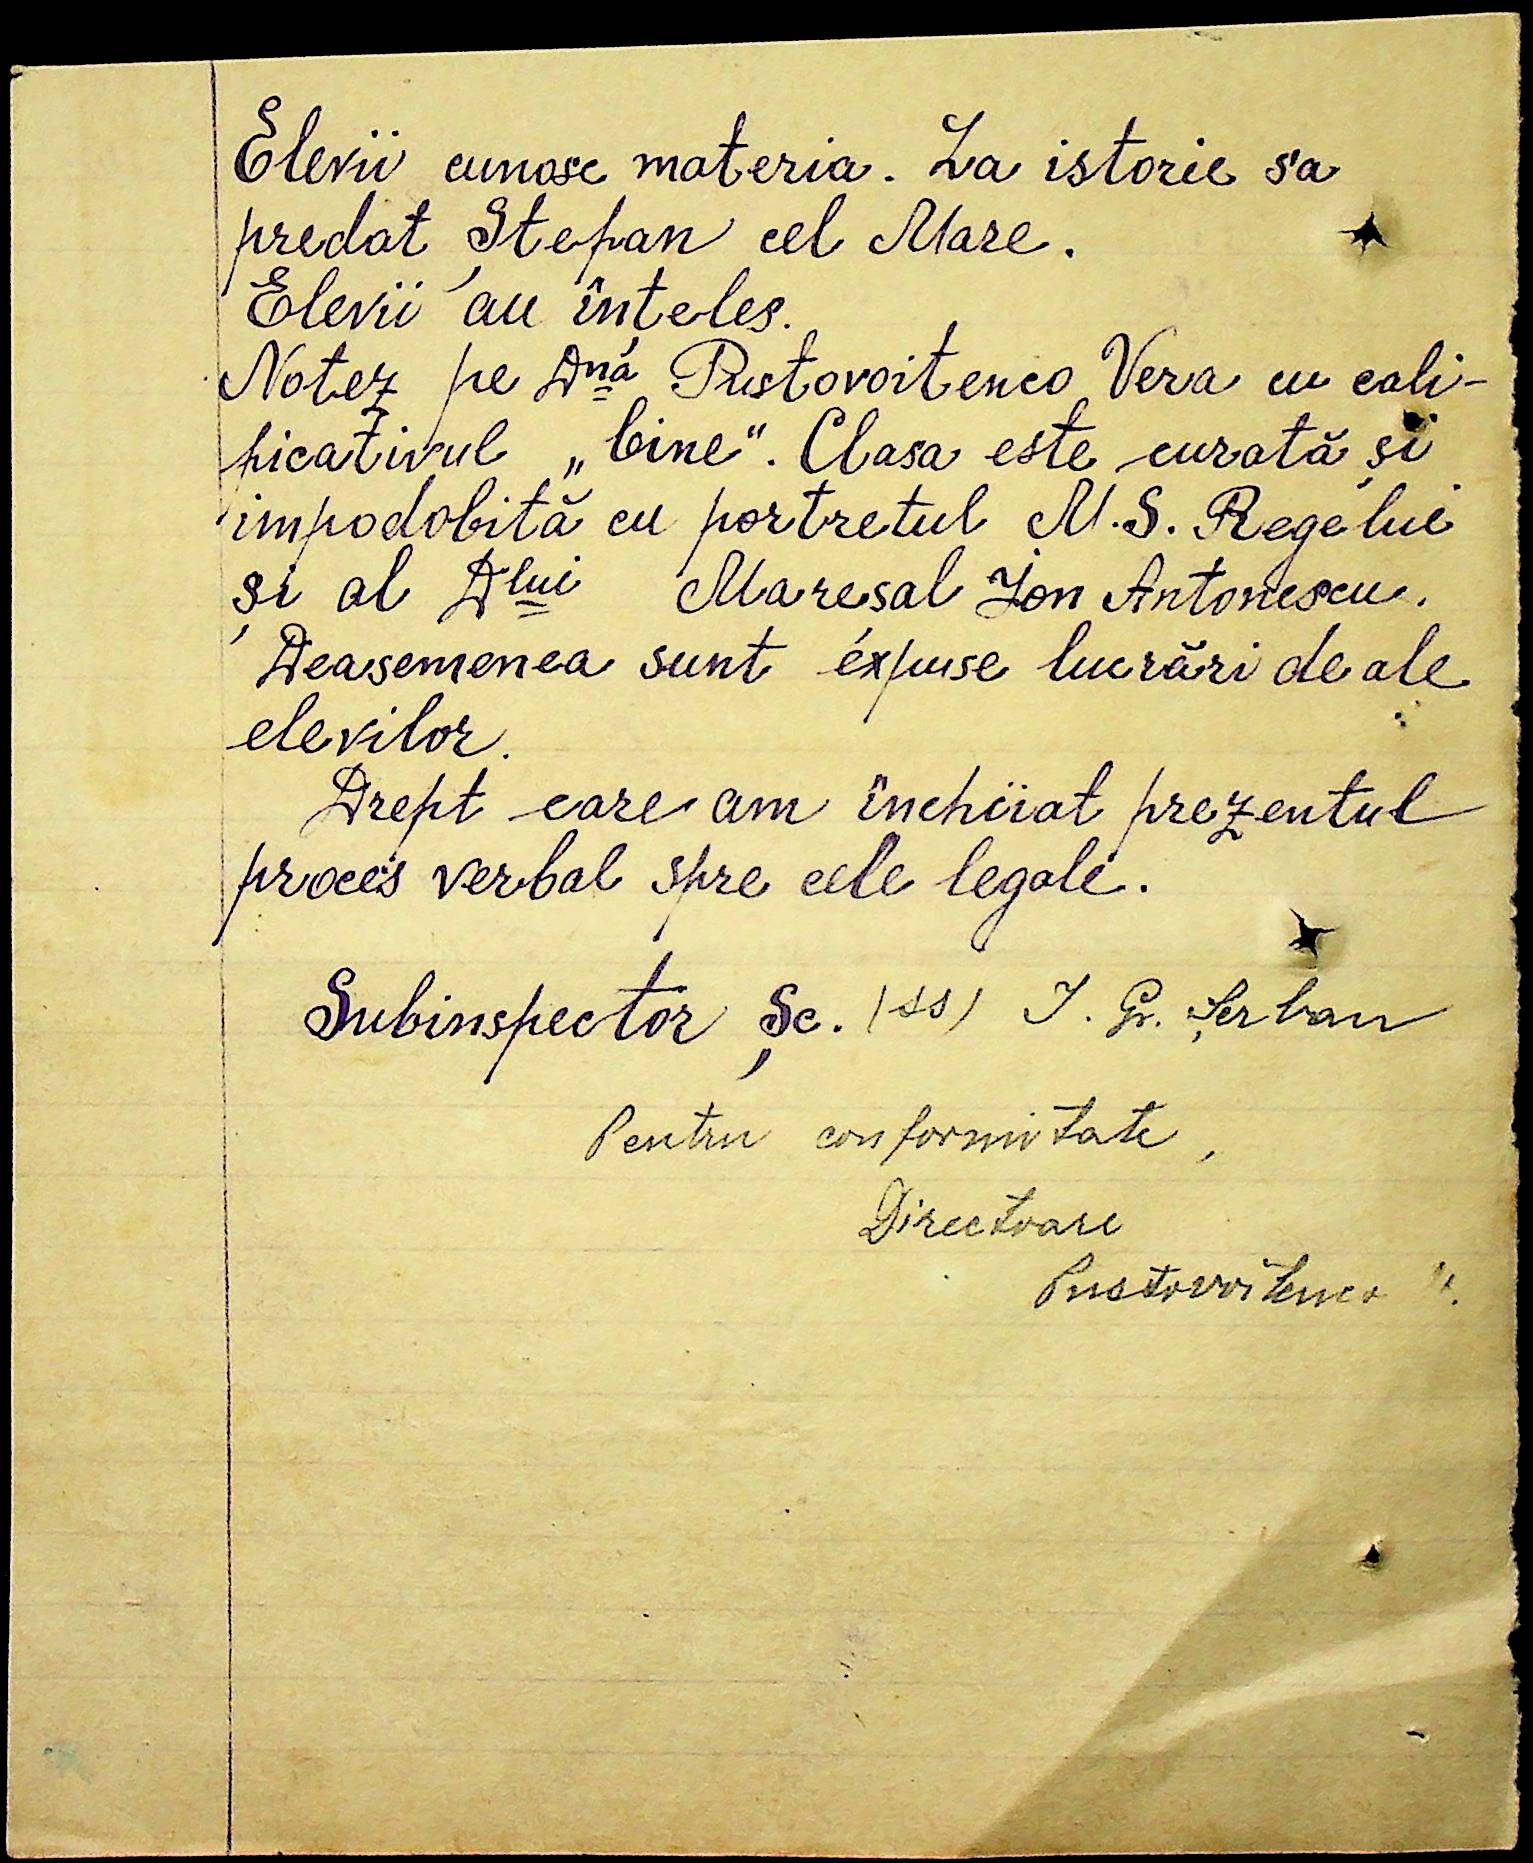 Elevii cunosc materia. La istorie s'a
predat Ștefan cel Mare.
Elevii au înțeles.
Notez pe Dna Pustovoitenco Vera cu cali-
ficativul „bine". Clasa este curată și
împodobită cu portretul M.S. Regelui
și al Dlui Maresal Ion Antonescu.
Deasemenea sunt expuse lucrări de ale
elevilor.
Drept care am închiiat prezentul
proces verbal spre cele legale.
Subinspector Șc. (ss) I. Gr. Șerban
Pentru conformitate,
Directoare
Pustovoitenco